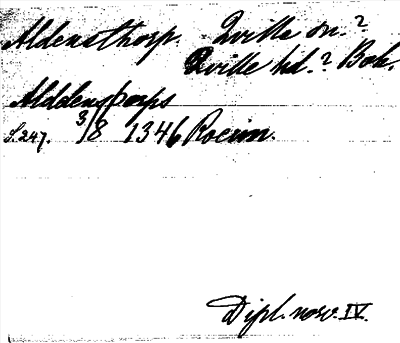 Aldensthorp. Qville sn.?
Qville hd.? Boh.
Alddensþorps
S. 247. 3/8 1346 Rocum.
Dipl. norv. IV.